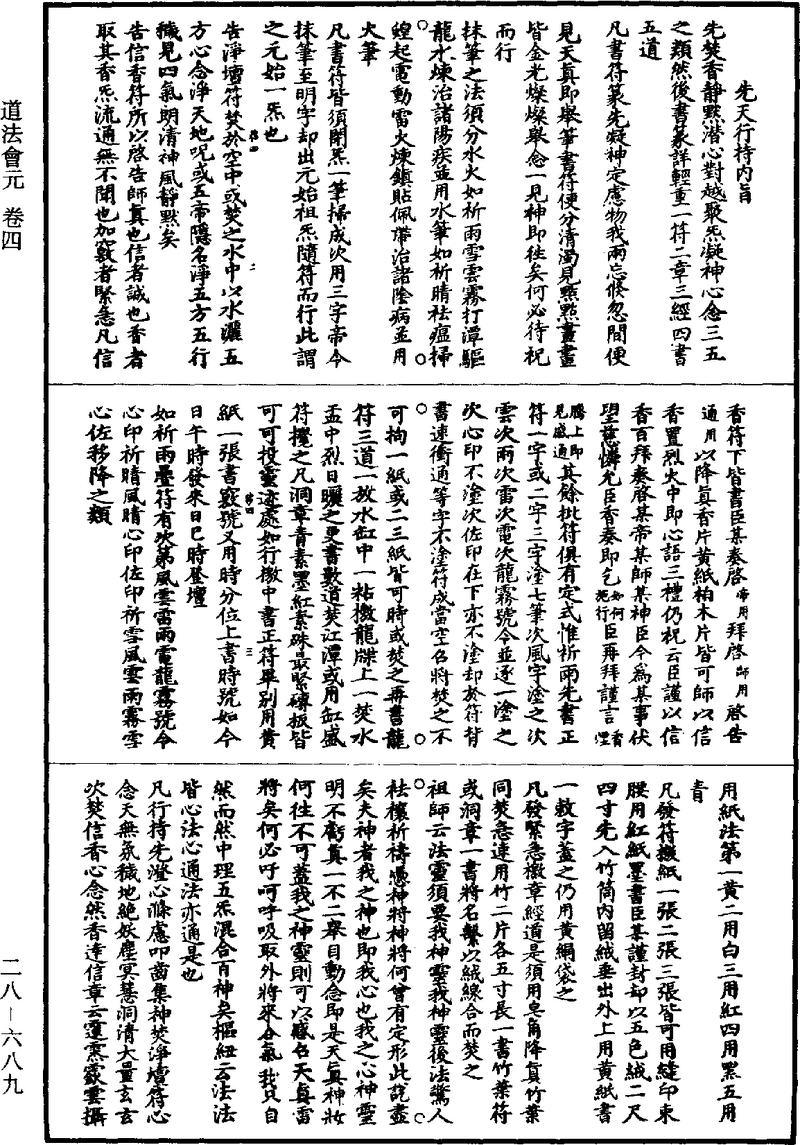 道法會元　卷四
先天行持內旨
先焚香靜默潛心對越聚炁凝神心念三五
之類然後書篆詳輕重一符二章三經四書
五道
凡書符篆先凝神定慮物我兩忘倏忽間便
見天真即舉筆書符便分清濁見點點畫畫
皆金光燦燦舉念一見神即往矣何必待祝
而行
抹筆之法須分水火如祈雨雪雲霧打潭驅
龍水煉治諸陽疾並用水筆如祈晴祛瘟掃
蝗起電動雷火煉鎮貼佩帶治諸陰病並用
火筆
凡書符皆須閉炁一筆掃成次用三字帝令
抹筆至明字却出元始祖炁隨符而行此謂
之元始一炁也
告淨壇符焚於空中或焚之水中以水灑五
方心念淨天地呪或五帝隱名淨五方五行
穢見四氣朗清神風靜默矣
告信香符所以啓告師真也信者誠也香者
取其香炁流通無不聞也加竅者緊急凡信
香符下皆書臣某奏啓帝用拜啓師用啓告
通用以降真香片黃紙柏木片皆可師以信
香置烈火中即心語三禮仍祝云臣謹以信
香百拜奏啓某帝某師某神臣今爲某事伏
望慈憐允臣香奏即乞如何施行臣再拜謹言香煙
騰上即見感通其餘批符俱有定式惟祈雨先書正
符一字或二字三字塗七筆次風字塗之次
雲次雨次雷次電次龍霧號令並逐一塗之
次心印不塗次佐印在下亦不塗却於符背
書速衝通等字不塗符成當空召將焚之不
可拘一紙或二三紙皆可時或焚之再書龍
符三道一放水缸中一粘檄龍牒上一焚水
盂中烈日曬之更書數道焚江潭或用缸盛
符攪之凡洞章青素墨紅素硃最緊磚板皆
可可投靈迹處如行檄中書正符畢別用黃
紙一張書竅號又用時分位上書時號如今
日午時發來日巳時登壇
如祈雨疊符有次第風雲雷雨電龍霧號令
心印祈晴風晴心印佐印祈雪風雲雨霧雪
心佐移降之類
用紙法第一黃二用白三用紅四用黑五用
青
凡發符檄紙一張二張三張皆可用縫印束
腰用紅紙墨書臣某謹封却以五色絨二尺
四寸先入竹筒內留絨垂出外上用黃紙書
一敕字蓋之仍用黃絹袋之
凡發緊急檄章經道是須用皂角降真竹葉
同焚急速用竹二片各五寸長一書竹葉符
或洞章一書將名繫以絨線合而焚之
祖師云法靈須要我神靈我神靈後法驚人
祛禳祈禱憑神將神將何曾有定形此說盡
矣夫神者我之神也即我心也我之心神靈
明不虧真一不二舉目動念即是天真神妙
何往不可蓋我之神靈則可以感召天真雷
將矣何必吁呵呼吸取外將來合氣我只自
然而然中理五炁混合百神矣樞紐云法法
皆心法心通法亦通是也
凡行持先澄心滌慮叩齒集神焚淨壇符心
念天無氛穢地絕妖塵冥慧洞清大量玄玄
次焚信香心念然香達信章云蓬熏鬱雲攝
二八—六八九